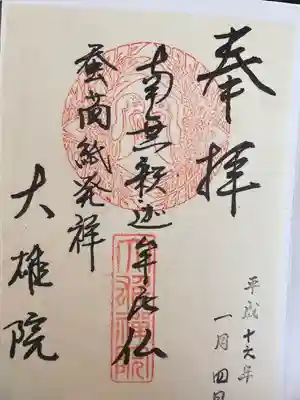 奉拝
平成十六年
一月四日
南無釈迦牟尼仏
蚕菌紙発祥
大雄院